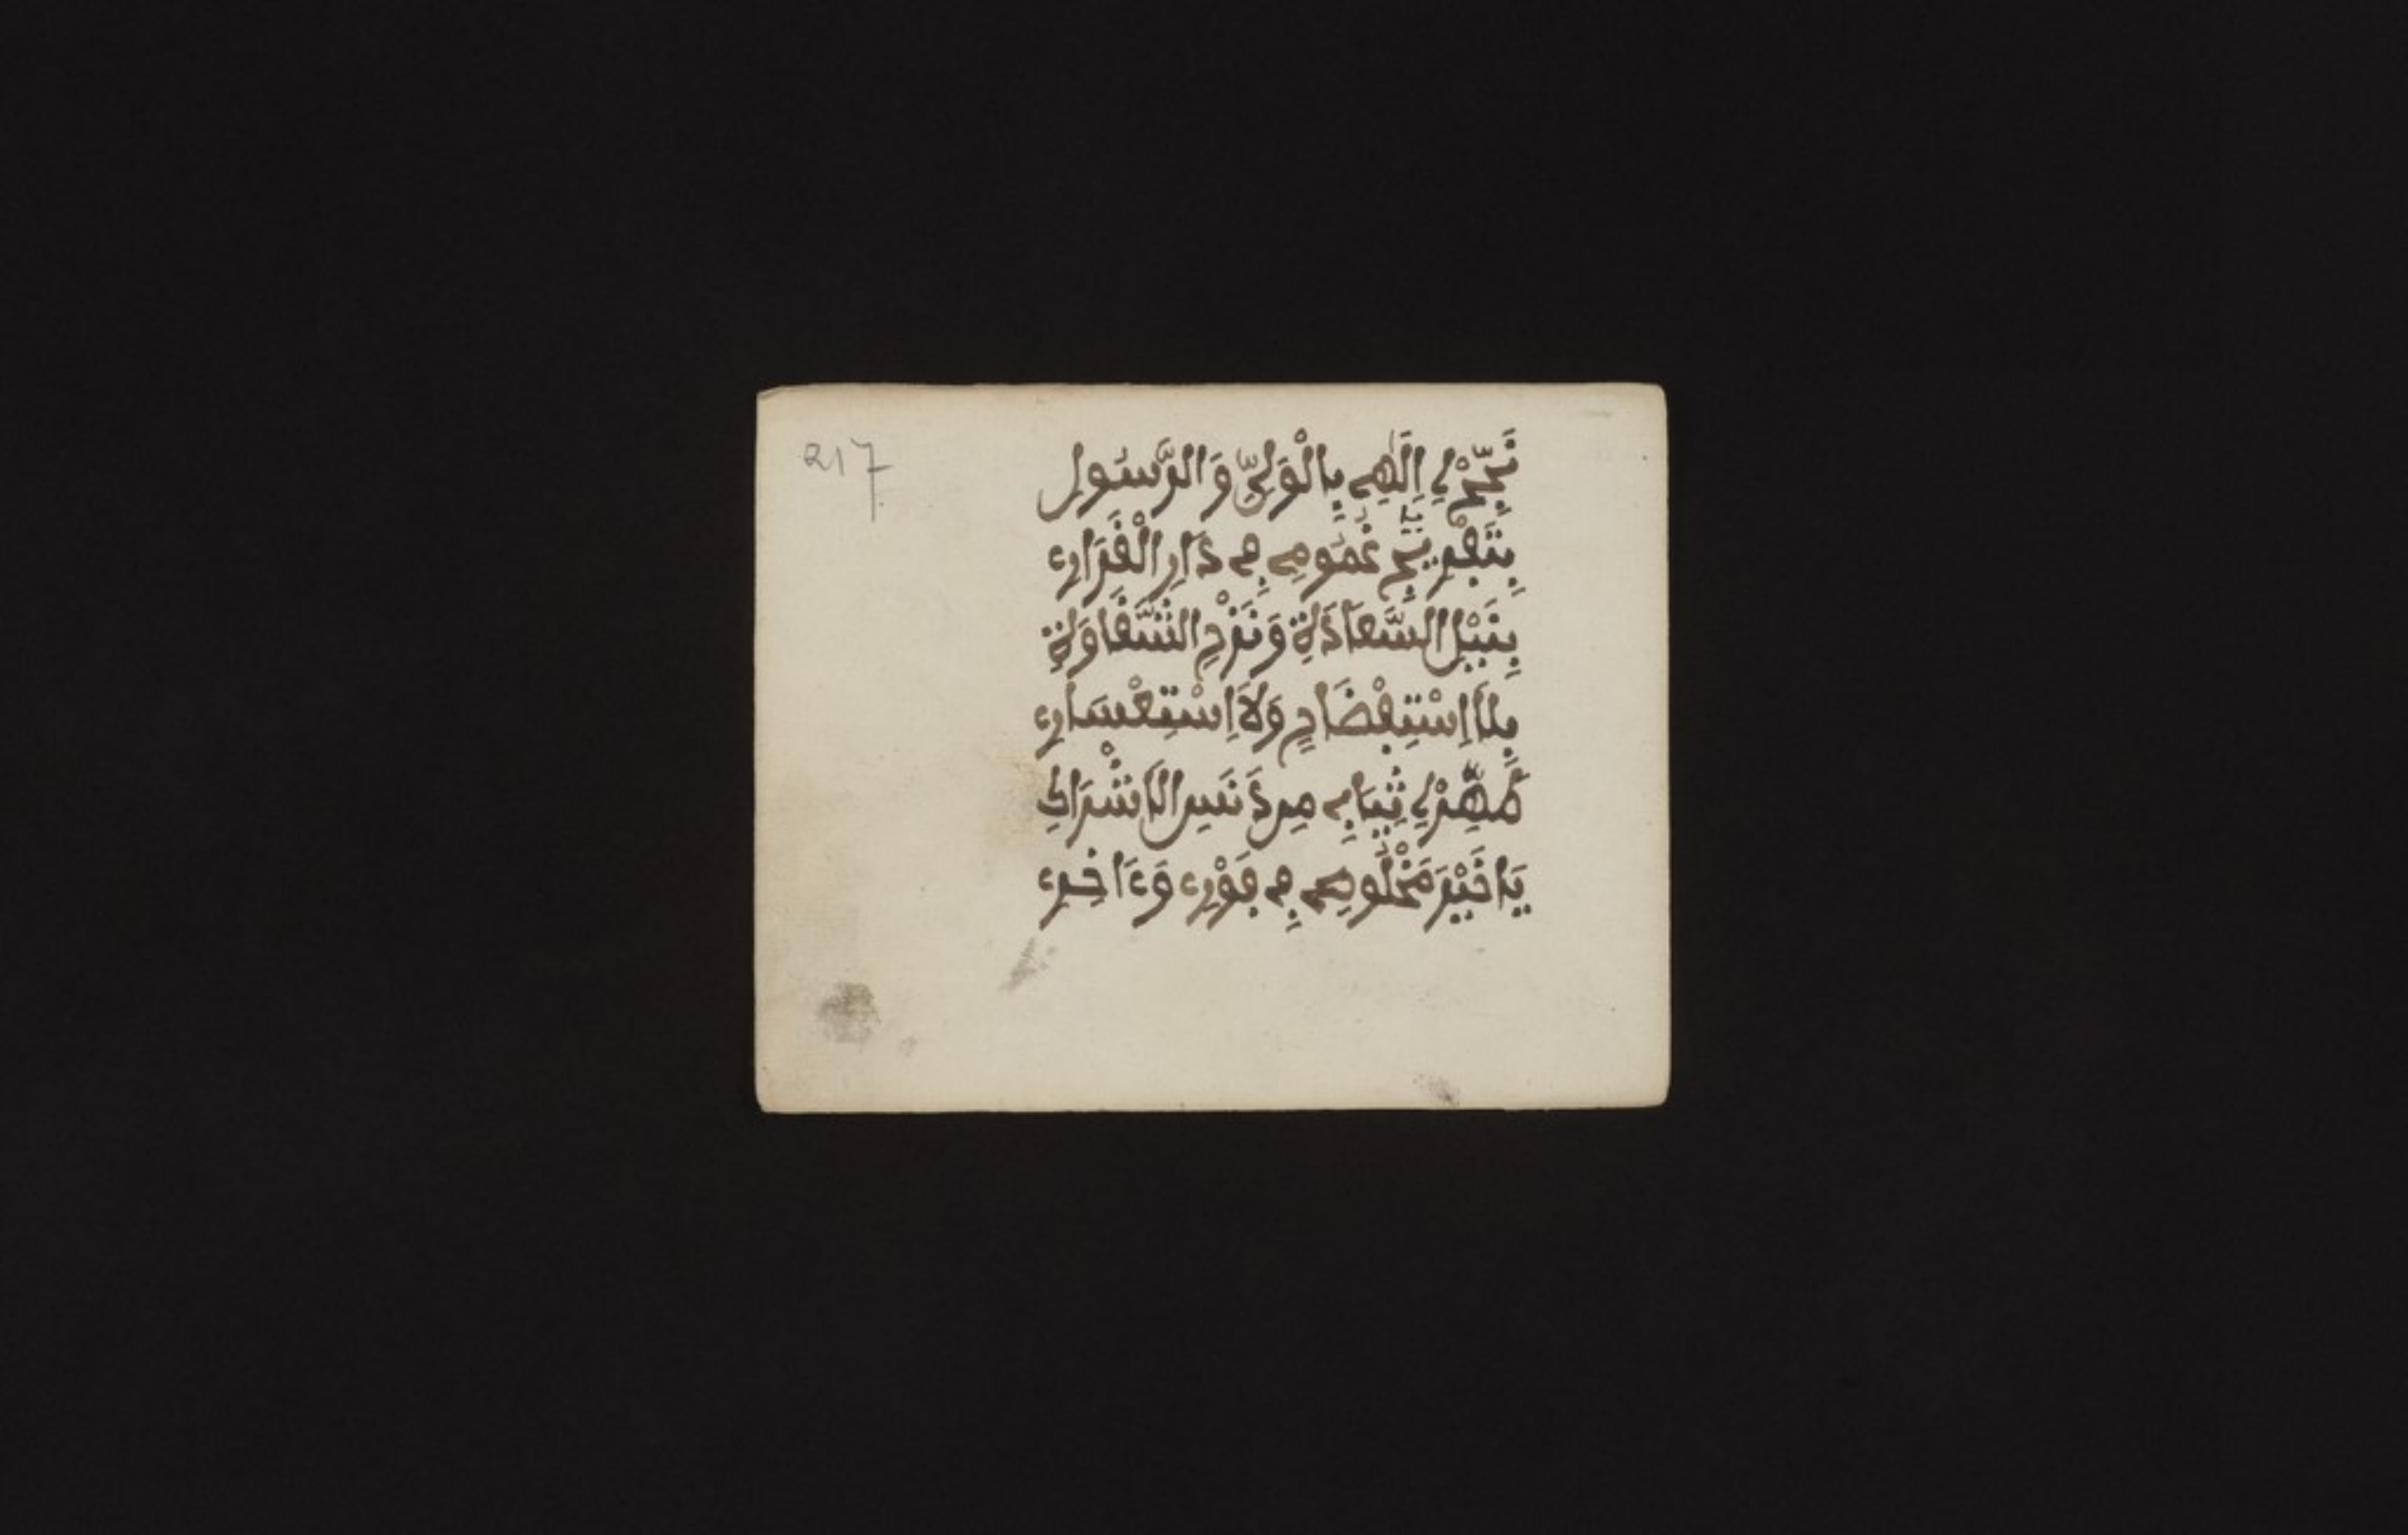 217
نَجِّحْ لِے إِلَٰهِے بِالْوَلِيِّ وَالرَّسُولِ
بِتَفْرِيجِ غُمُومِے فِے دَارِ الْقَرَارِے
بِنَيْلِ السَّعَادَةِ وَنَزْحِ الشَّقَاوَةِ
بِلَا اِسْتِفْضَاحٍ وَلَا اِسْتِعْسَارِے
طَهِّرْ لِے ثِيَابِے مِن دَنَسِ الْاِشْرَاكِ
يَا خَيْرَ فِے فَوْرِے وَءَاخِرِے